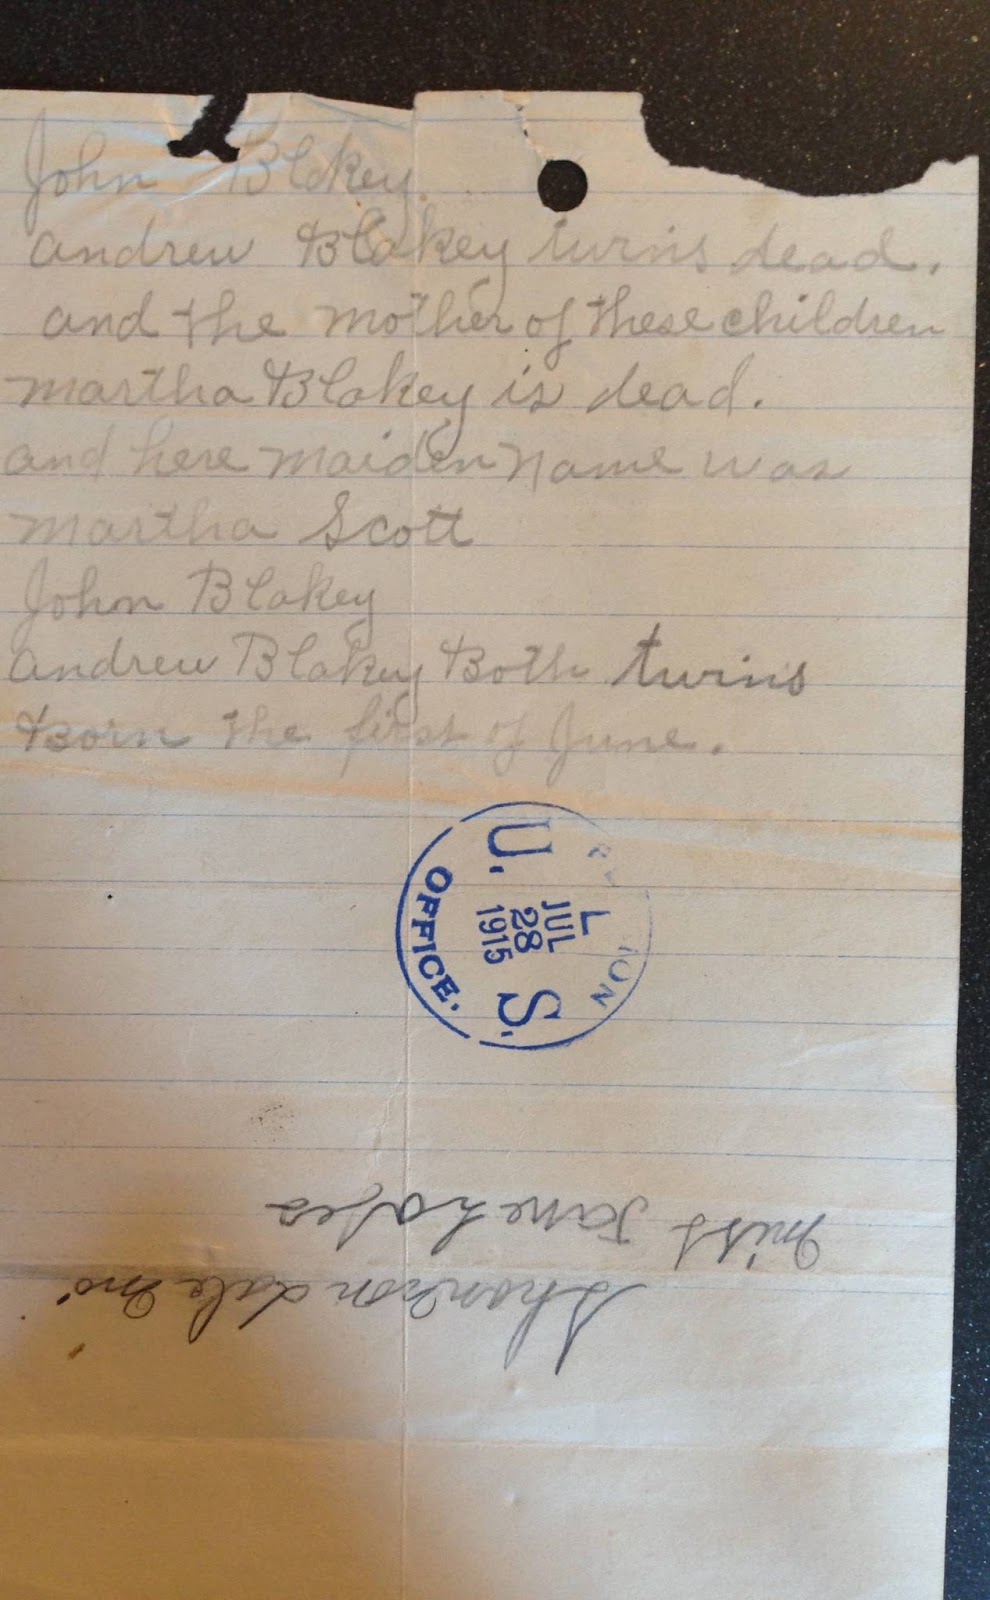 John Blakey
andrew Blakey twins dead.
and the mother of these children
martha Blakey is dead.
and here maiden name was
martha Scott
John Blakey
andrew Blakey Both twins
Born the first of June.
U. S.
L
JUL
28
1915
OFFICE.
Miss Jane
Shannondale Mo